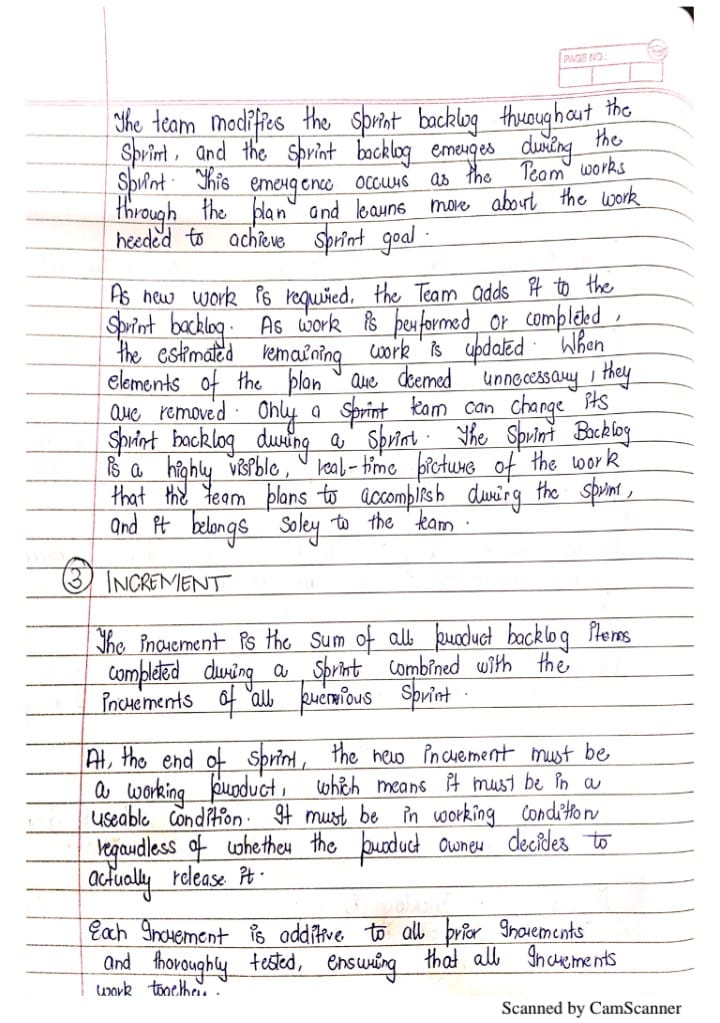 PAGE NO.:
The team modifies the Sprint backlog throughout the
Sprint, and the sprint backlog emerges during the
Sprint. This emergence occurs as the Team works
through the plan and learns more about the work
needed to achieve Sprint goal.
As new work is required, the Team adds it to the
Sprint backlog. As work is performed or completed,
the estimated remaining work is updated. When
elements of the plan are deemed unnecessary, they
are removed. Only a Sprint team can change its
Sprint backlog during a Sprint. The Sprint Backlog
is a highly visible, real-time picture of the work
that the team plans to accomplish during the sprint,
and it belongs soley to the team.
3 INCREMENT
The increment is the sum of all product backlog items
completed during a Sprint combined with the
increments of all previous Sprint.
At, the end of sprint, the new increment must be
a working product, which means it must be in a
useable condition. It must be in working condition
regardless of whether the product owner decides to
actually release it.
Each Increment is additive to all prior Increments
and thoroughly tested, ensuring that all Increments
work together.
Scanned by CamScanner